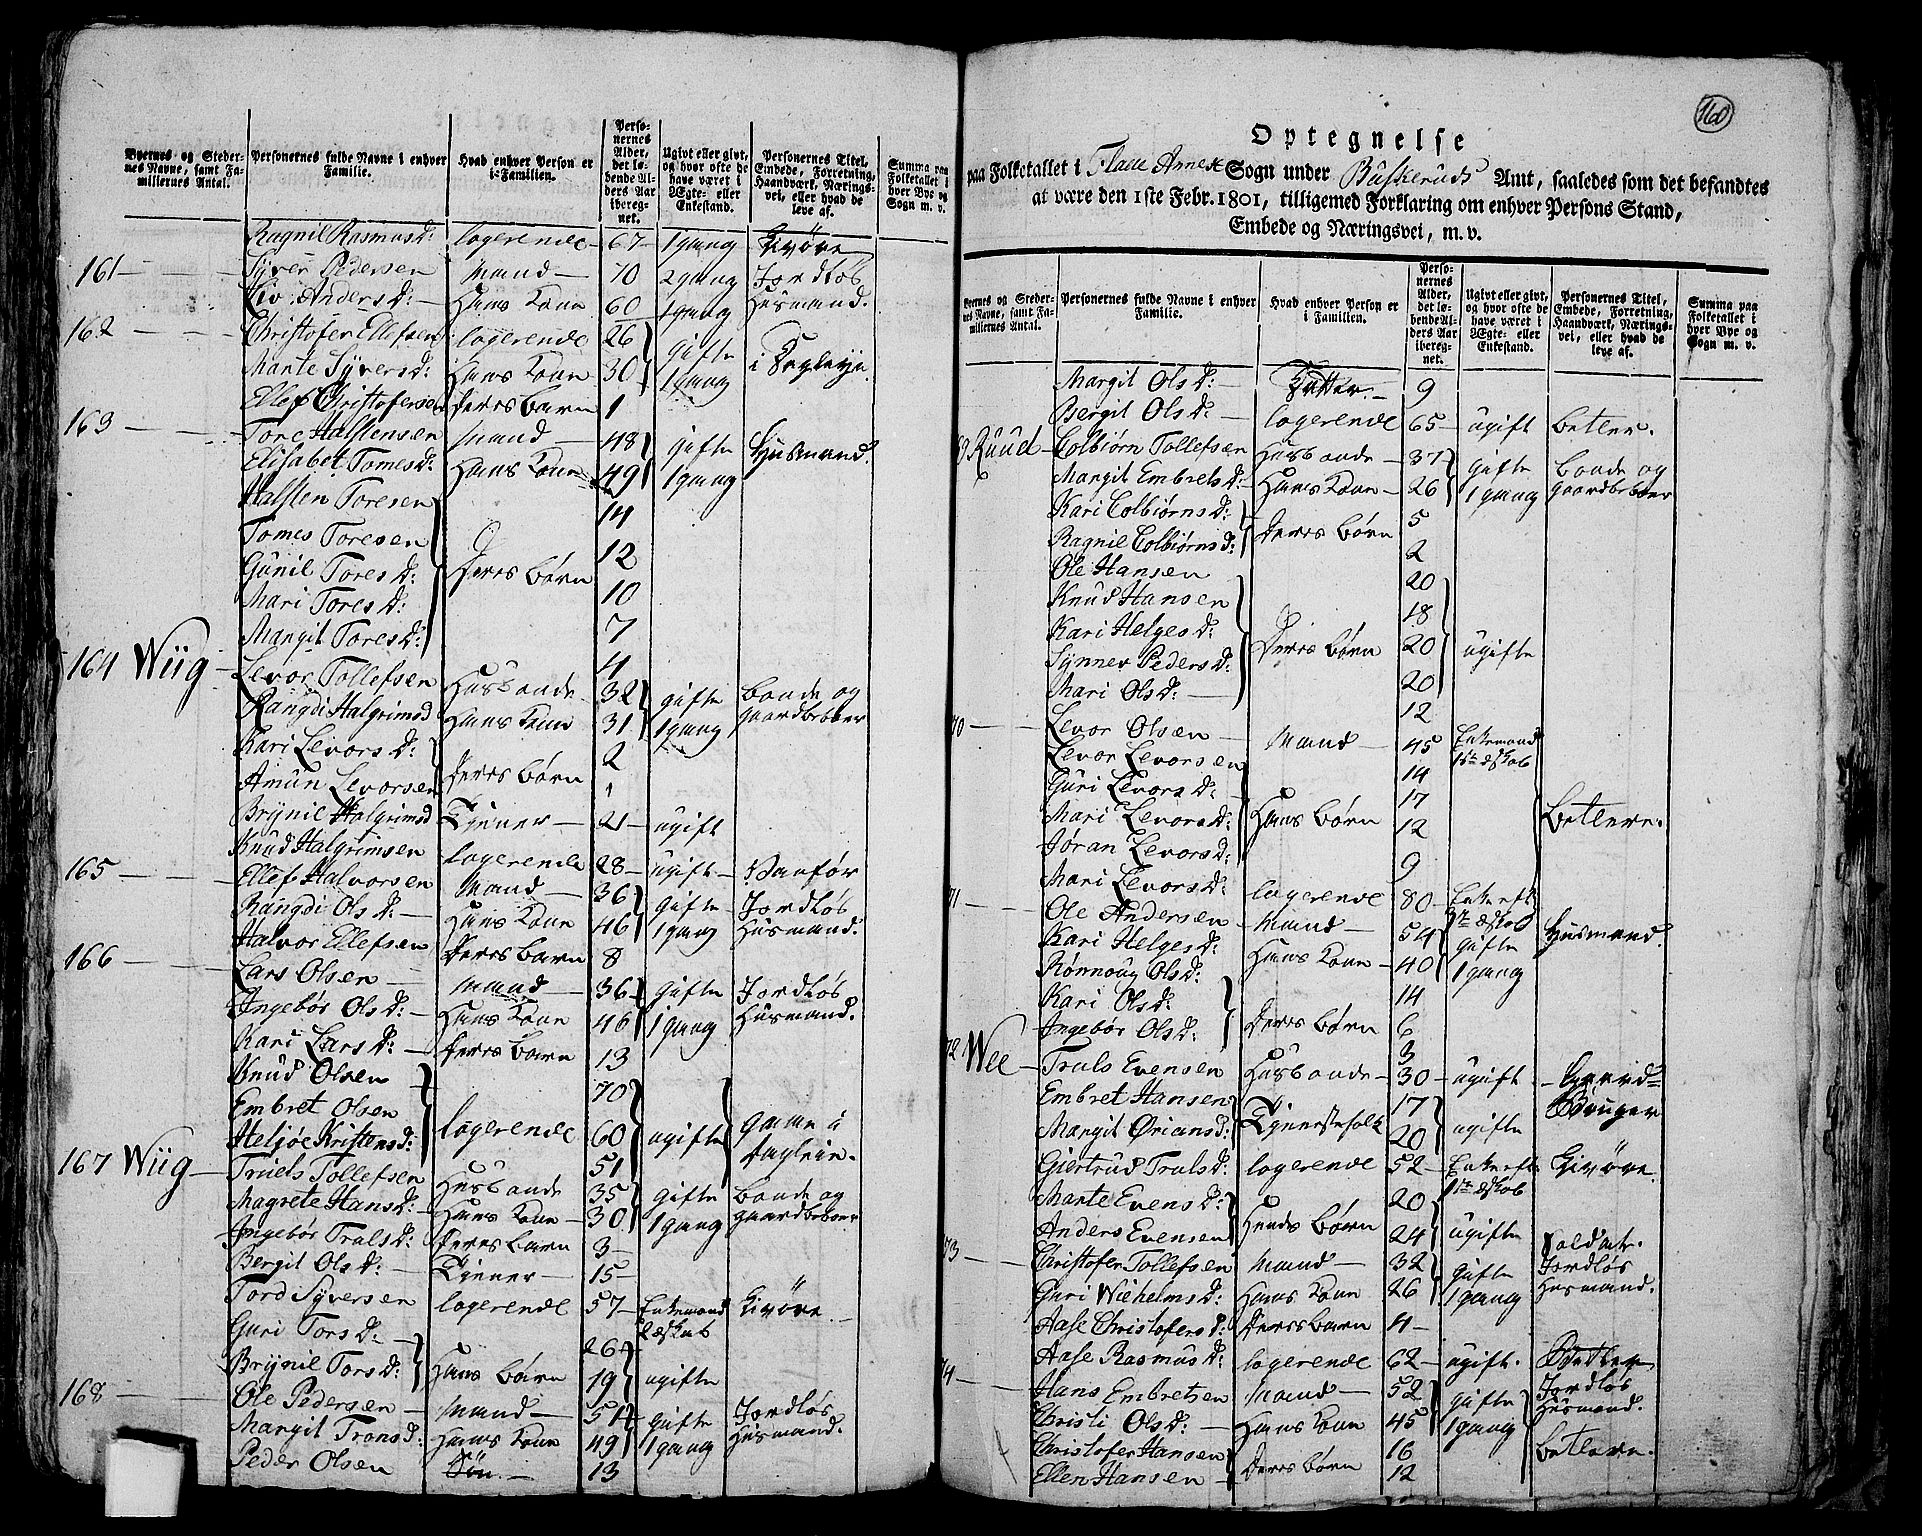 Byernes og Steder-
nes Navne, samt Fa-
miliernes Antal.
Personernes fulde Navne i enhver
Familie.
Hvad enhver Person er
i Familien.
Perso-
nernes
Alder,
det lø-
bende Al-
ders Aar
ibereg-
net.
Ugivt eller givt,
og hvor ofte de
have været i
Ægte- eller
Enkestand.
Personernes Titel,
Embede, Forretning,
Haandværk, Nærings-
vei, eller hvad de
leve af.
Summa paa
Folketallet i
hver Bye og
Sogn m. v.
Ragnil Rasmusd: logerende 67 1 gang
161 Syver Pedersen Mand 70 2 gang Jordløs
Liv Andersd: Hans Kone 60 1 gang Husmand.
162 Christofer Ellefsen logerende 26 gifte
Marte Syversd: Hans Kone 30 1 gang
Ellef Christofersen Deres barn 1
163 Tore Halstensen Mand 48 gifte Husmand.
Elisabet Tomesd: Hans Kone 49 1 gang
Halsten Toresen 14
Tomes Toresen 12
Gunil Toresd: Deres børn 10
Mari Toresd: 7
Margit Toresd: 4
164 Wiig Levor Tollefsen Husbonde 32 gifte bonde og
Rangdi Halgrimsd Hans Kone 31 1 gang gaardbeboer
Kari Levorsd: 2
Amun Levorsen Deres børn 1
Brynil Halgrimsd Tjener 21 ugift
Knud Halgrimsen logerende 28 ugift Vanfør
165 Ellef Halvorsen Mand 36 gifte Jordløs
Rangdi Olsd: Hans Kone 46 1 gang Husmand.
Halvor Ellefsen Deres barn 8
166 Lars Olsen Mand 36 gifte Jordløs
Ingebør Olsd: Hans Kone 46 1 gang Husmand.
Kari Larsd: Deres barn 13
Knud Olsen 70
Embret Olsen logerende 60 ugifte
Heljøe Kristensd: 51
167 Wiig Truels Tollefsen Husbonde 35 gifte bonde og
Magrete Hansd: Hans Kone 30 1 gang gaardbeboer
Ingebør Trulsd: Deres barn 3
Bergit Olsd: Tjener 15
Tord Syversen logerende 57 Enkemand
Guri Torsd: 26
Brynil Torsd: Hans børn 19 ugifte
168 Ole Pedersen Mand 51 gifte Jordløs
Margit Tronsd: Hans Kone 49 1 gang Husmand.
Peder Olsen Søn 13
160
Optegnelse
paa Folketallet i Flaae Annex Sogn under Buskeruds Amt, saaledes som det befandtes
at være den 1ste Febr. 1801, tilligemed Forklaring om enhver Persons Stand,
Embede og Næringsvei, m. v.
Byernes og Steder-
nes Navne, samt Fa-
miliernes Antal.
Personernes fulde Navne i enhver
Familie.
Hvad enhver Person er
i Familien.
Perso-
nernes
Alder,
det lø-
bende Al-
ders Aar
ibereg-
net.
Ugivt eller givt,
og hvor ofte de
have været i
Ægte- eller
Enkestand.
Personernes Titel,
Embede, Forretning,
Haandværk, Nærings-
vei, eller hvad de
leve af.
Summa paa
Folketallet i
hver Bye og
Sogn m. v.
Margit Olsd: 9
Bergit Olsd: logerende 65 ugift betler.
69 Ruud Colbiørn Tollefsen Husbonde 37 gifte bonde og
Margit Embretsd: Hans Kone 26 1 gang gaardbeboer
Kari Colbiørnsd: 5
Ragnil Colbiørnsd: Deres børn 2
Ole Hansen 20
Knud Hansen 18
Kari Helgesd: Deres børn 20 ugifte
Synnev Pedersd: 20
Mari Olsd: 12
70 Levor Olsen Mand 45 Enkemand
Levor Levorsen 14
Guri Levorsd: 17
Mari Levorsd: Hans børn 12 Betlere.
Jøran Levorsd: 9
Mari Levorsd: logerende 80
71 Ole Andersen Mand 54 gifte Husmand.
Kari Helgesd: Hans Kone 40 1 gang
Rønnoug Olsd: 14
Kari Olsd: Deres børn 6
Ingebør Olsd: 3
72 Wee Truls Evensen Husbonde 30 ugift Gaard-
Embret Hansen 17 Bruger
Margit Øriansd: Tjenestefolk 20 ugifte
Giertrud Trulsd: logerende 52
Marte Evensd: 20
Anders Evensen Hendes børn 24 ugifte Soldat.
73 Christofer Tollefsen Mand 32 gifte Jordløs
Guri Wiehelmsd: Hans Kone 26 1 gang Husmand.
Aase Christofersd: Deres barn 4
Aase Rasmusd: logerende 62 ugift. Betler
74 Hans Embretsen Mand 52 gifte Jordløs
Christi Olsd: Hans Kone 45 1 gang Husmand.
Christofer Hansen 16
Ellen Hansen Deres børn 12 betlere.